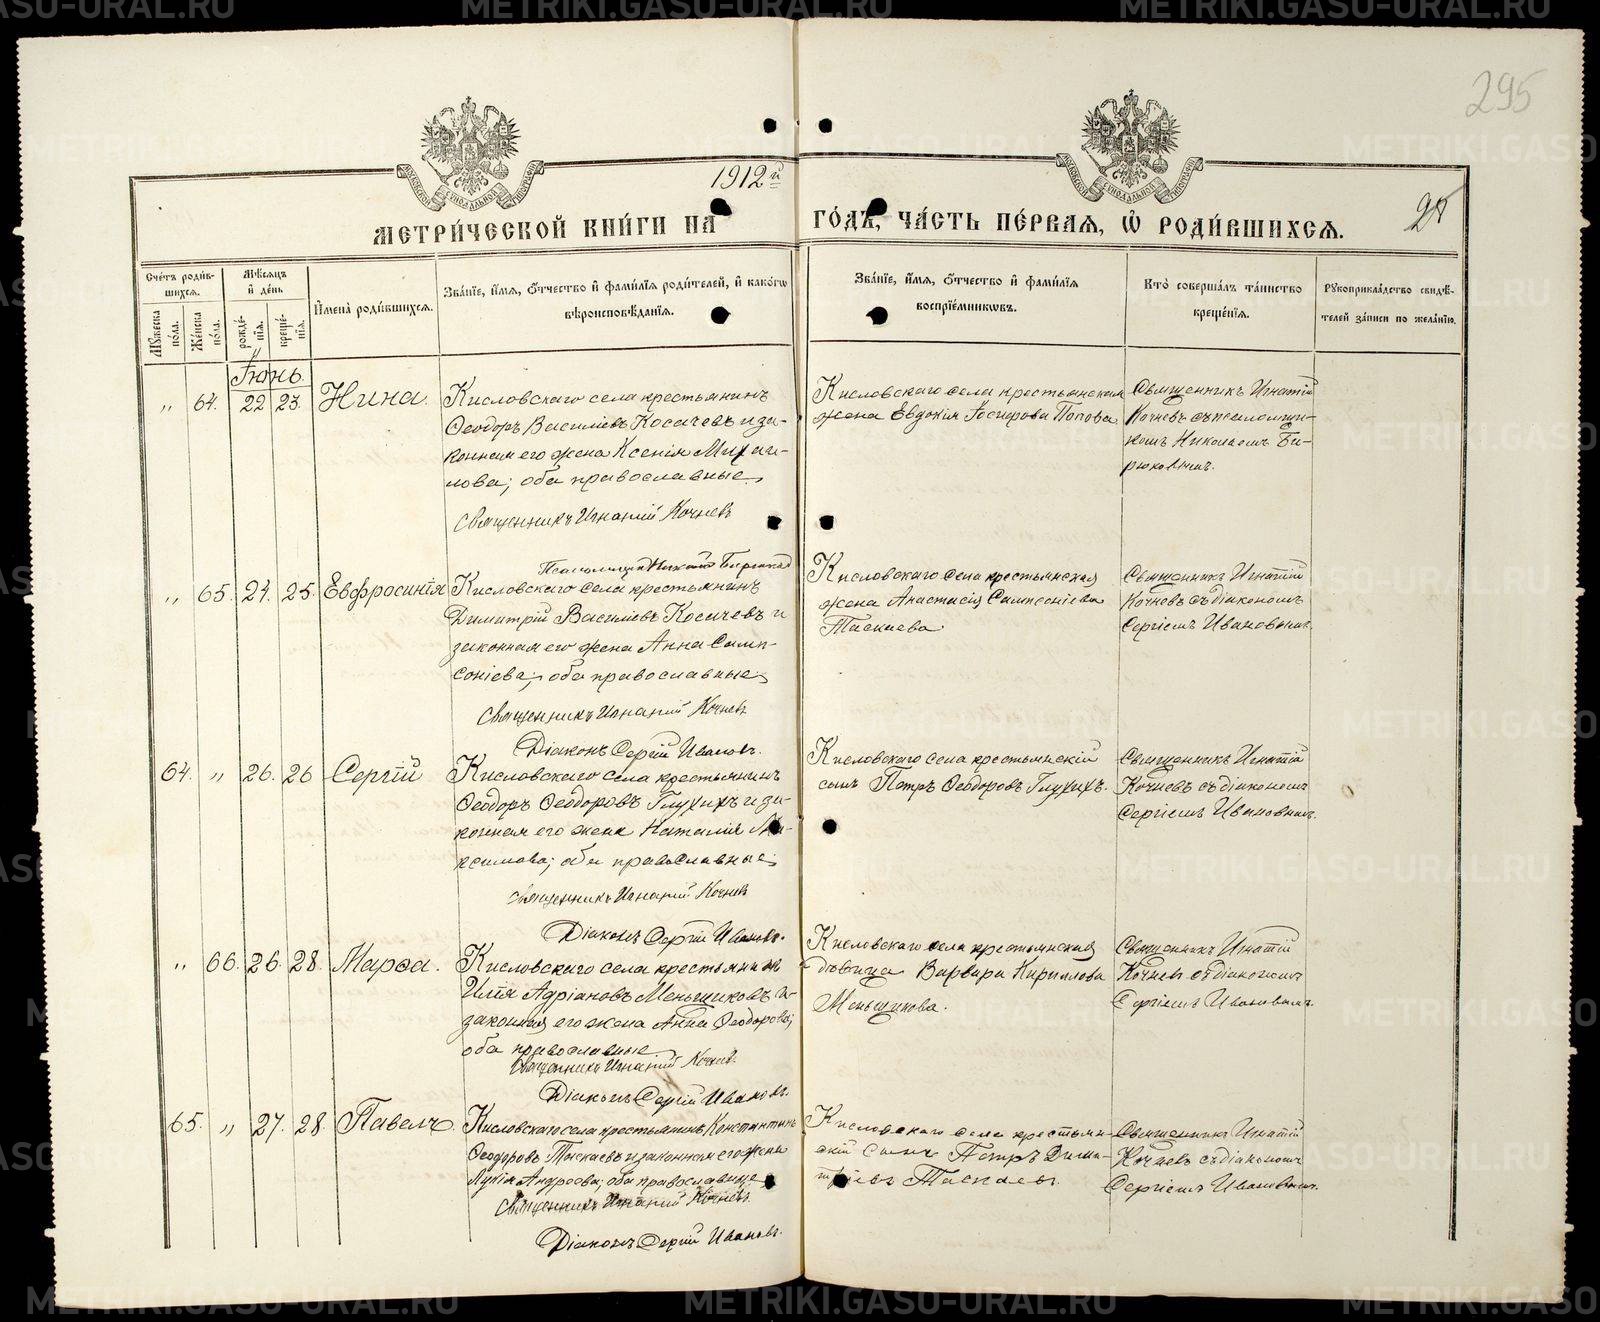 295
1912й
МЕТРИ́ЧЕСКОЙ КНИ́ГИ НА ГО́ДЪ, ЧА́СТЬ ПЕ́РВАЯ, Ѡ РОДИ́ВШИХСЯ.
Сче́тъ роди́в-
шихся.
Мꙋ́жеска по́ла.
Же́нска по́ла.
Мѣ́сяцъ
и де́нь
рожде́-
нїя.
креще́-
нїя.
И҆мена̀ роди́вшихся.
Зва́нїе, и҆́мя, ѻ҆́тчество и҆ фами́лїя роди́телей, и҆ како́гѡ
вѣроисповѣ́данїя.
Зва́нїе, и҆́мя, ѻ҆́тчество и҆ фами́лїя
воспрїе́мникѡвъ.
Кто̀ соверша́лъ та́инство
креще́нїя.
Рꙋкоприкла́дство свидѣ́-
телей за́писи по жела́нїю.
Іюнь
„ 64. 22 23. Нина.
Кисловскаго села крестьянинъ
Ѳеодоръ Василіевъ Косачевъ и за-
конная его жена Ксенія Михаи-
лова; оба православные
Священникъ Игнатій Кочневъ
Кисловскаго села крестьянская
жена Евдокія Іосифова Попова
Священникъ Игнатій
Кочневъ съ псаломщи-
комъ Николаемъ Би-
рюковымъ.
„ 65. 24. 25. Евфросинія
Кисловскаго села крестьянинъ
Димитрій Василіевъ Косачевъ и
законная его жена Анна Самп-
соніева; оба православные
Священникъ Игнатій Кочневъ
Діаконъ Сергій Ивановъ.
Кисловскаго села крестьянская
жена Анастасія Сампсоніева
Таскаева
Священникъ Игнатій
Кочневъ съ діакономъ
Сергіемъ Ивановымъ.
64. „ 26. 26 Сергій
Кисловскаго села крестьянинъ
Ѳеодоръ Ѳеодоровъ Глухихъ и за-
конная его жена Наталія Ма-
ксимова; оба православные
Священникъ Игнатій Кочневъ
Діаконъ Сергій Ивановъ.
Кисловскаго села крестьянскій
сынъ Петръ Ѳеодоровъ Глухихъ.
Священникъ Игнатій
Кочневъ съ діакономъ
Сергіемъ Ивановымъ.
„ 66. 26. 28. Марѳа.
Кисловскаго села крестьянинъ
Илія Адріановъ Меньщиковъ и
законная его жена Анна Ѳеодорова;
оба православные
Священникъ Игнатій Кочневъ
Діаконъ Сергій Ивановъ.
Кисловскаго села крестьянская
дѣвица Варвара Кириллова
Меньщикова.
Священникъ Игнатій
Кочневъ съ діакономъ
Сергіемъ Ивановымъ.
65. „ 27. 28. Павелъ.
Кисловскаго села крестьянинъ Константинъ
Ѳеодоровъ Таскаевъ и законная его жена
Лукія Андреева; оба православные
Священникъ Игнатій Кочневъ.
Діаконъ Сергій Ивановъ.
Кисловскаго села крестьян-
скій сынъ Петръ Дими-
тріевъ Таскаевъ.
Священникъ Игнатій
Кочневъ съ діакономъ
Сергіемъ Ивановымъ.
METRIKI.GASO-URAL.RU